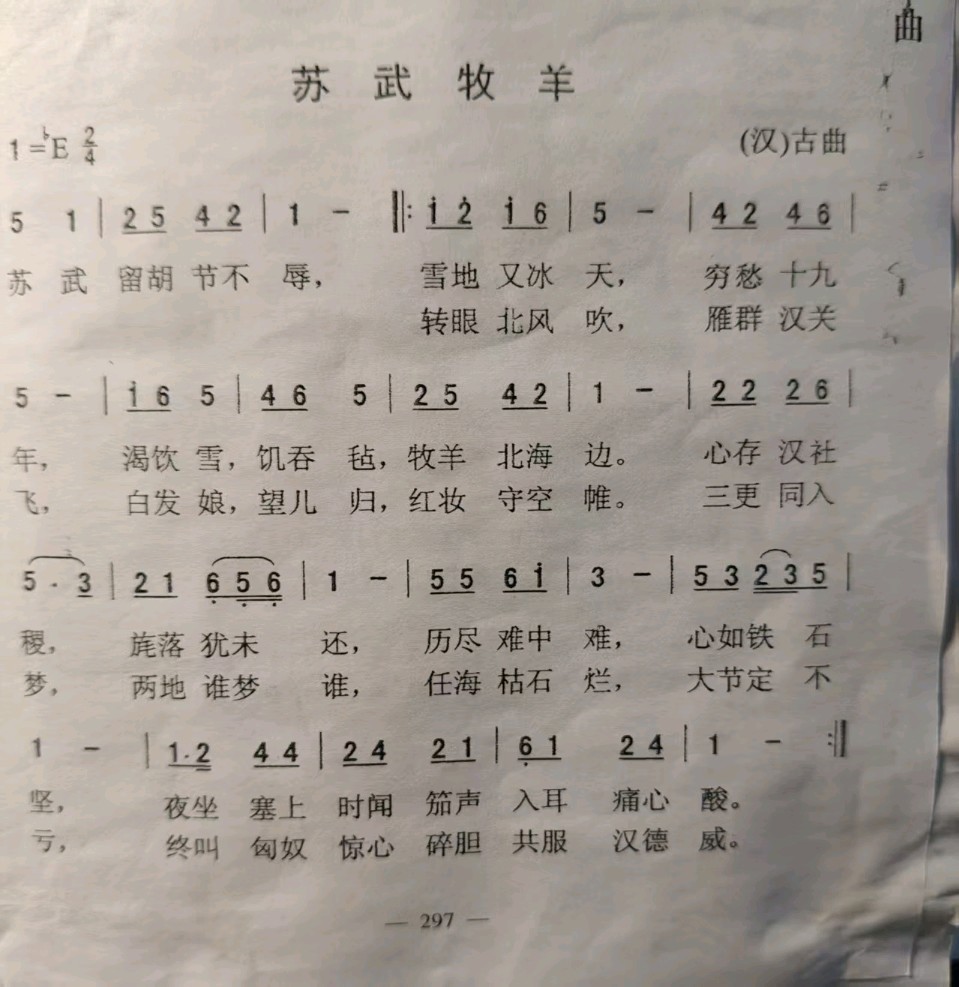 曲
苏 武 牧 羊
1=♭E 2/4 (汉)古曲
5 1 | 2 5 4 2 | 1 - ‖: i 2̇ i 6 | 5 - | 4 2 4 6 |
苏 武 留胡 节不 辱， 雪地 又冰 天， 穷愁 十九
转眼 北风 吹， 雁群 汉关
5 - | i 6 5 | 4 6 5 | 2 5 4 2 | 1 - | 2 2 2 6 |
年， 渴饮 雪，饥吞 毡，牧羊 北海 边。 心存 汉社
飞， 白发 娘，望儿 归，红妆 守空 帷。 三更 同入
5 · 3 | 2 1 6̣ 5̣ 6̣ | 1 - | 5 5 6 i | 3 - | 5 3 2 3 5 |
稷， 旄落 犹未 还， 历尽 难中 难， 心如铁 石
梦， 两地 谁梦 谁， 任海 枯石 烂， 大节定 不
1 - | 1·2 4 4 | 2 4 2 1 | 6̣ 1 2 4 | 1 - :‖
坚， 夜坐 塞上 时闻 笳声 入耳 痛心 酸。
亏， 终叫 匈奴 惊心 碎胆 共服 汉德 威。
— 297 —